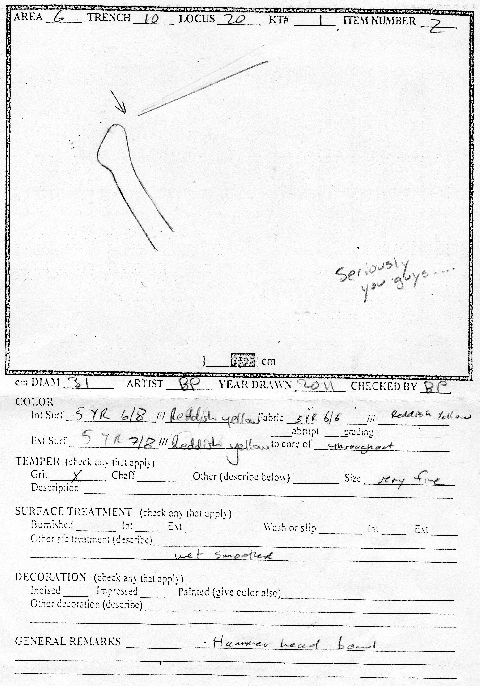 AREA 6 TRENCH 10 LOCUS 20 KT# 1 ITEM NUMBER 2
Seriously
you guys....
cm
cm DIAM 31 ARTIST BP YEAR DRAWN 2011 CHECKED BY BP
COLOR
Int Surf 5 YR 6/8 /// Reddish yellow Fabric 5 YR 6/6 /// Reddish Yellow
abrupt grading
Ext Surf 5 YR 7/8 /// Reddish yellow to core of throughout
TEMPER (check any that apply)
Grit X Chaff Other (describe below) Size very fine
Description
SURFACE TREATMENT (check any that apply)
Burnished Int Ext Wash or slip Int Ext
Other surface treatment (describe)
wet smoothed
DECORATION (check any that apply)
Incised Impressed Painted (give color also)
Other decoration (describe)
GENERAL REMARKS - Hammer head bowl